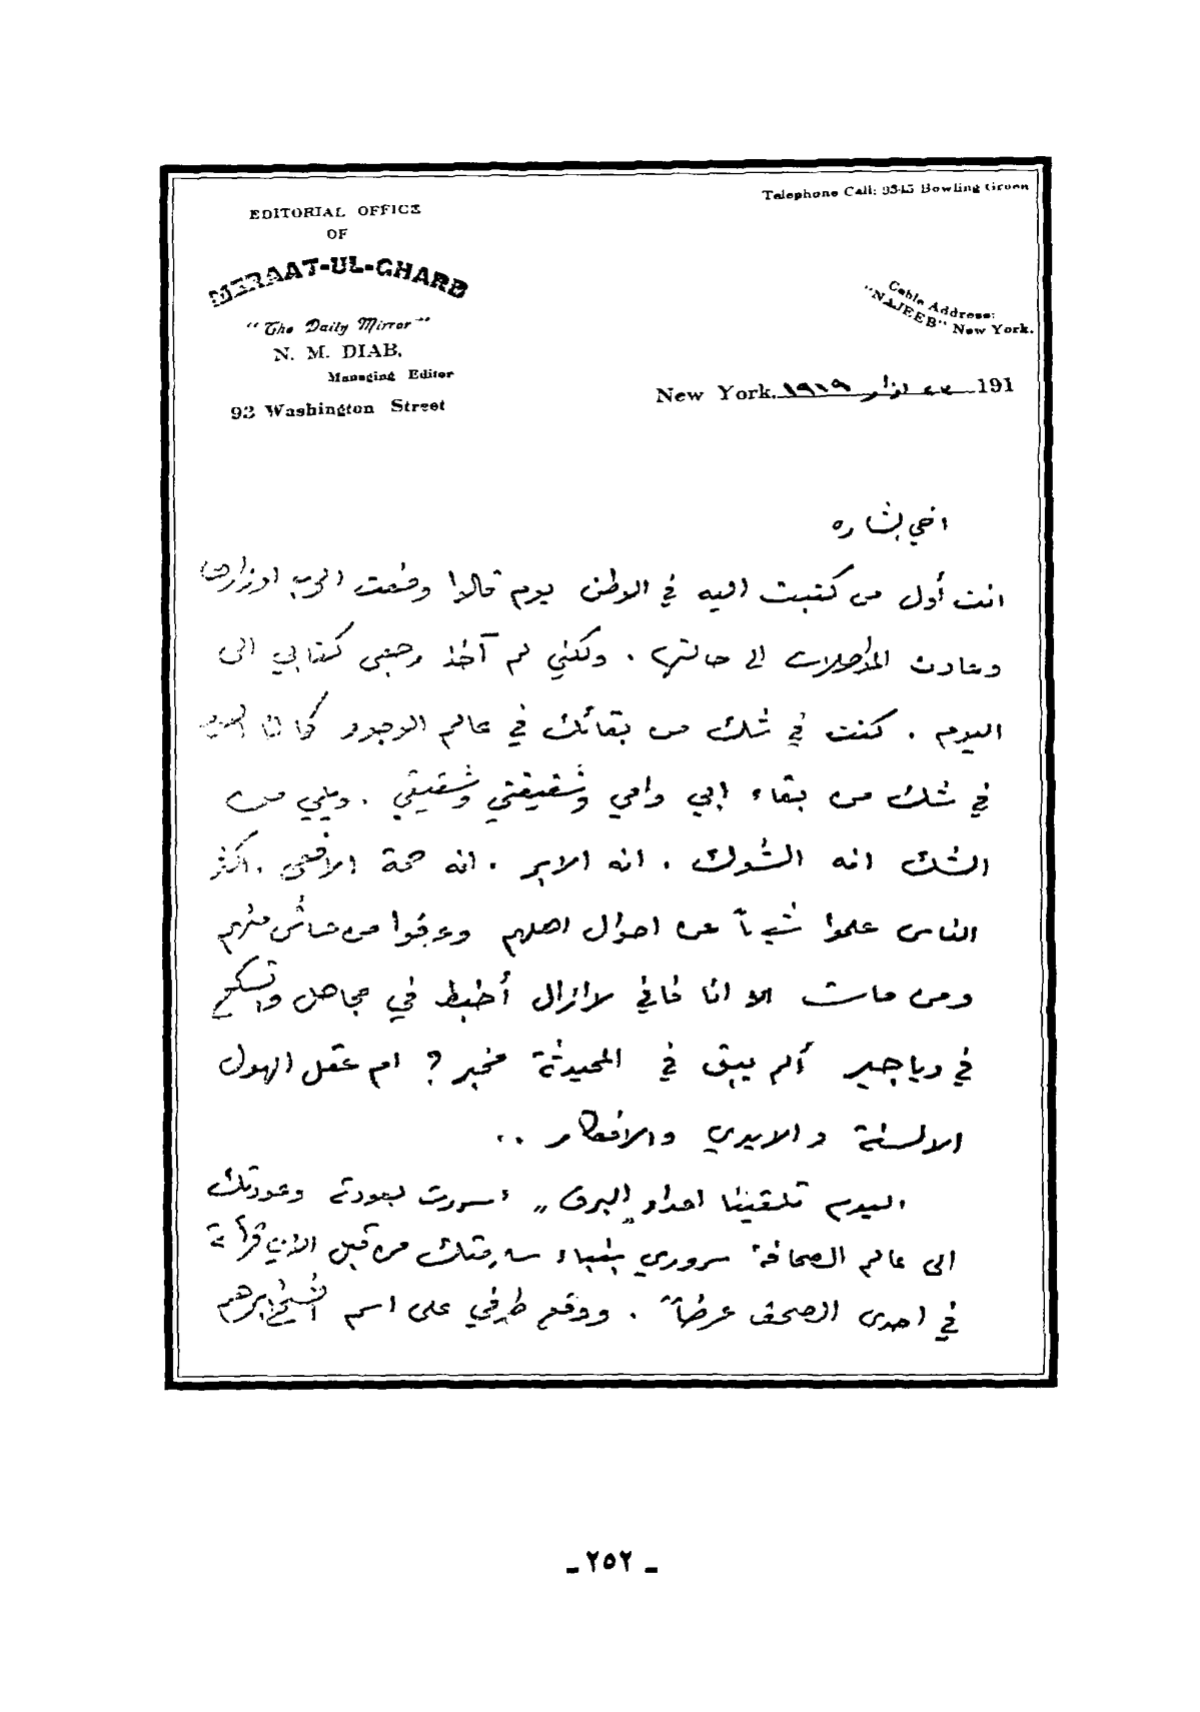 Telephone Call: 9345 Bowling Green
EDITORIAL OFFICE
OF
MERAAT-UL-GHARB
"The Daily Mirror"
N. M. DIAB,
Managing Editor
93 Washington Street
Cable Address:
"NAJEEB" New York.
New York, ٢٢ اذار ١٩١٩ 191
اخي بشاره
انت أول من كتبت اليه في الوطن يوم قالوا وضعت الحرب اوزارها
وعادت المواصلات الى حالتها . ولكني لم آخذ رجعى كتابي الى
اليوم . كنت في شك من بقائك في عالم الوجود كما انا اليوم
في شك من بقاء ابي وامي وشقيقتي وشقيقي . ويلي من
الشك انه الشوك . انه الابر . انه حمة الافعى . اكثر
الناس علموا شيئاً عن احوال اهلهم وعرفوا من عاش منهم
ومن مات الا انا فاني لا ازال أخبط في مجاهل واتسكع
في دياجير ألم يبق في المحيدثة مخبر ؟ ام عقل الهول
الالسنة والايدي والافكار ..
اليوم تلقينا اعداد "البرق" سررت بعودته وعودتك
الى عالم الصحافة سروري بنباء من قبل الذي قرأته
في احدى الصحف عرضاً . ووقع طرفي على اسم الشيخ ابرهيم
ـ ٢٥٢ ـ